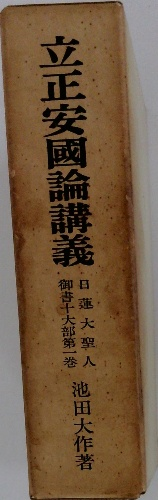 立正安國論講義
日蓮大聖人
御書十大部第一巻
池田大作著